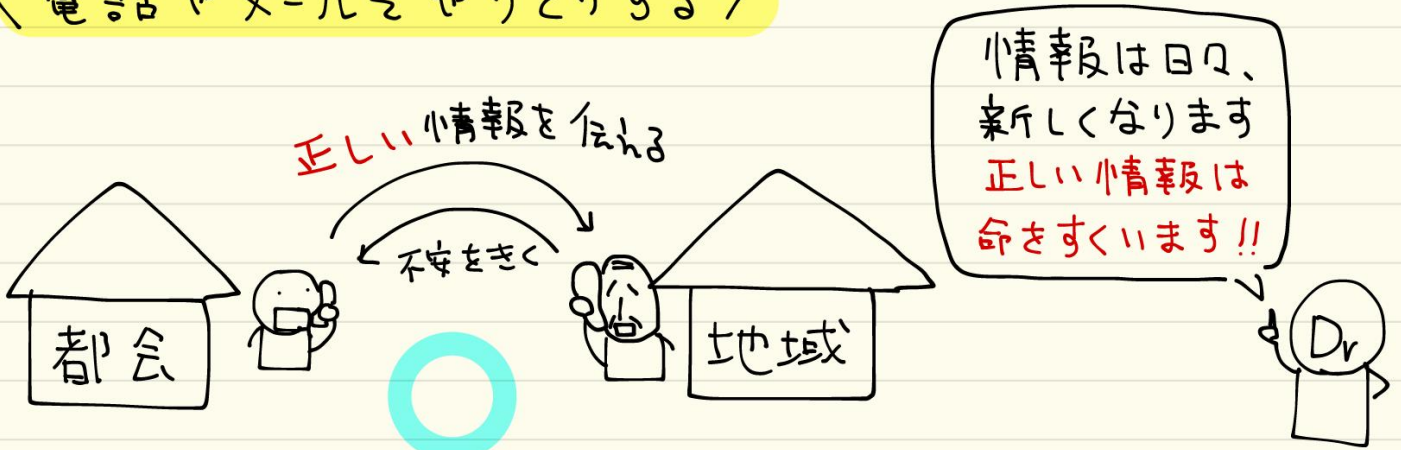 電話やメールをやりとりする
正しい情報を伝える
不安をきく
都会
地域
情報は日々、
新しくなります
正しい情報は
命をすくいます!!
Dr